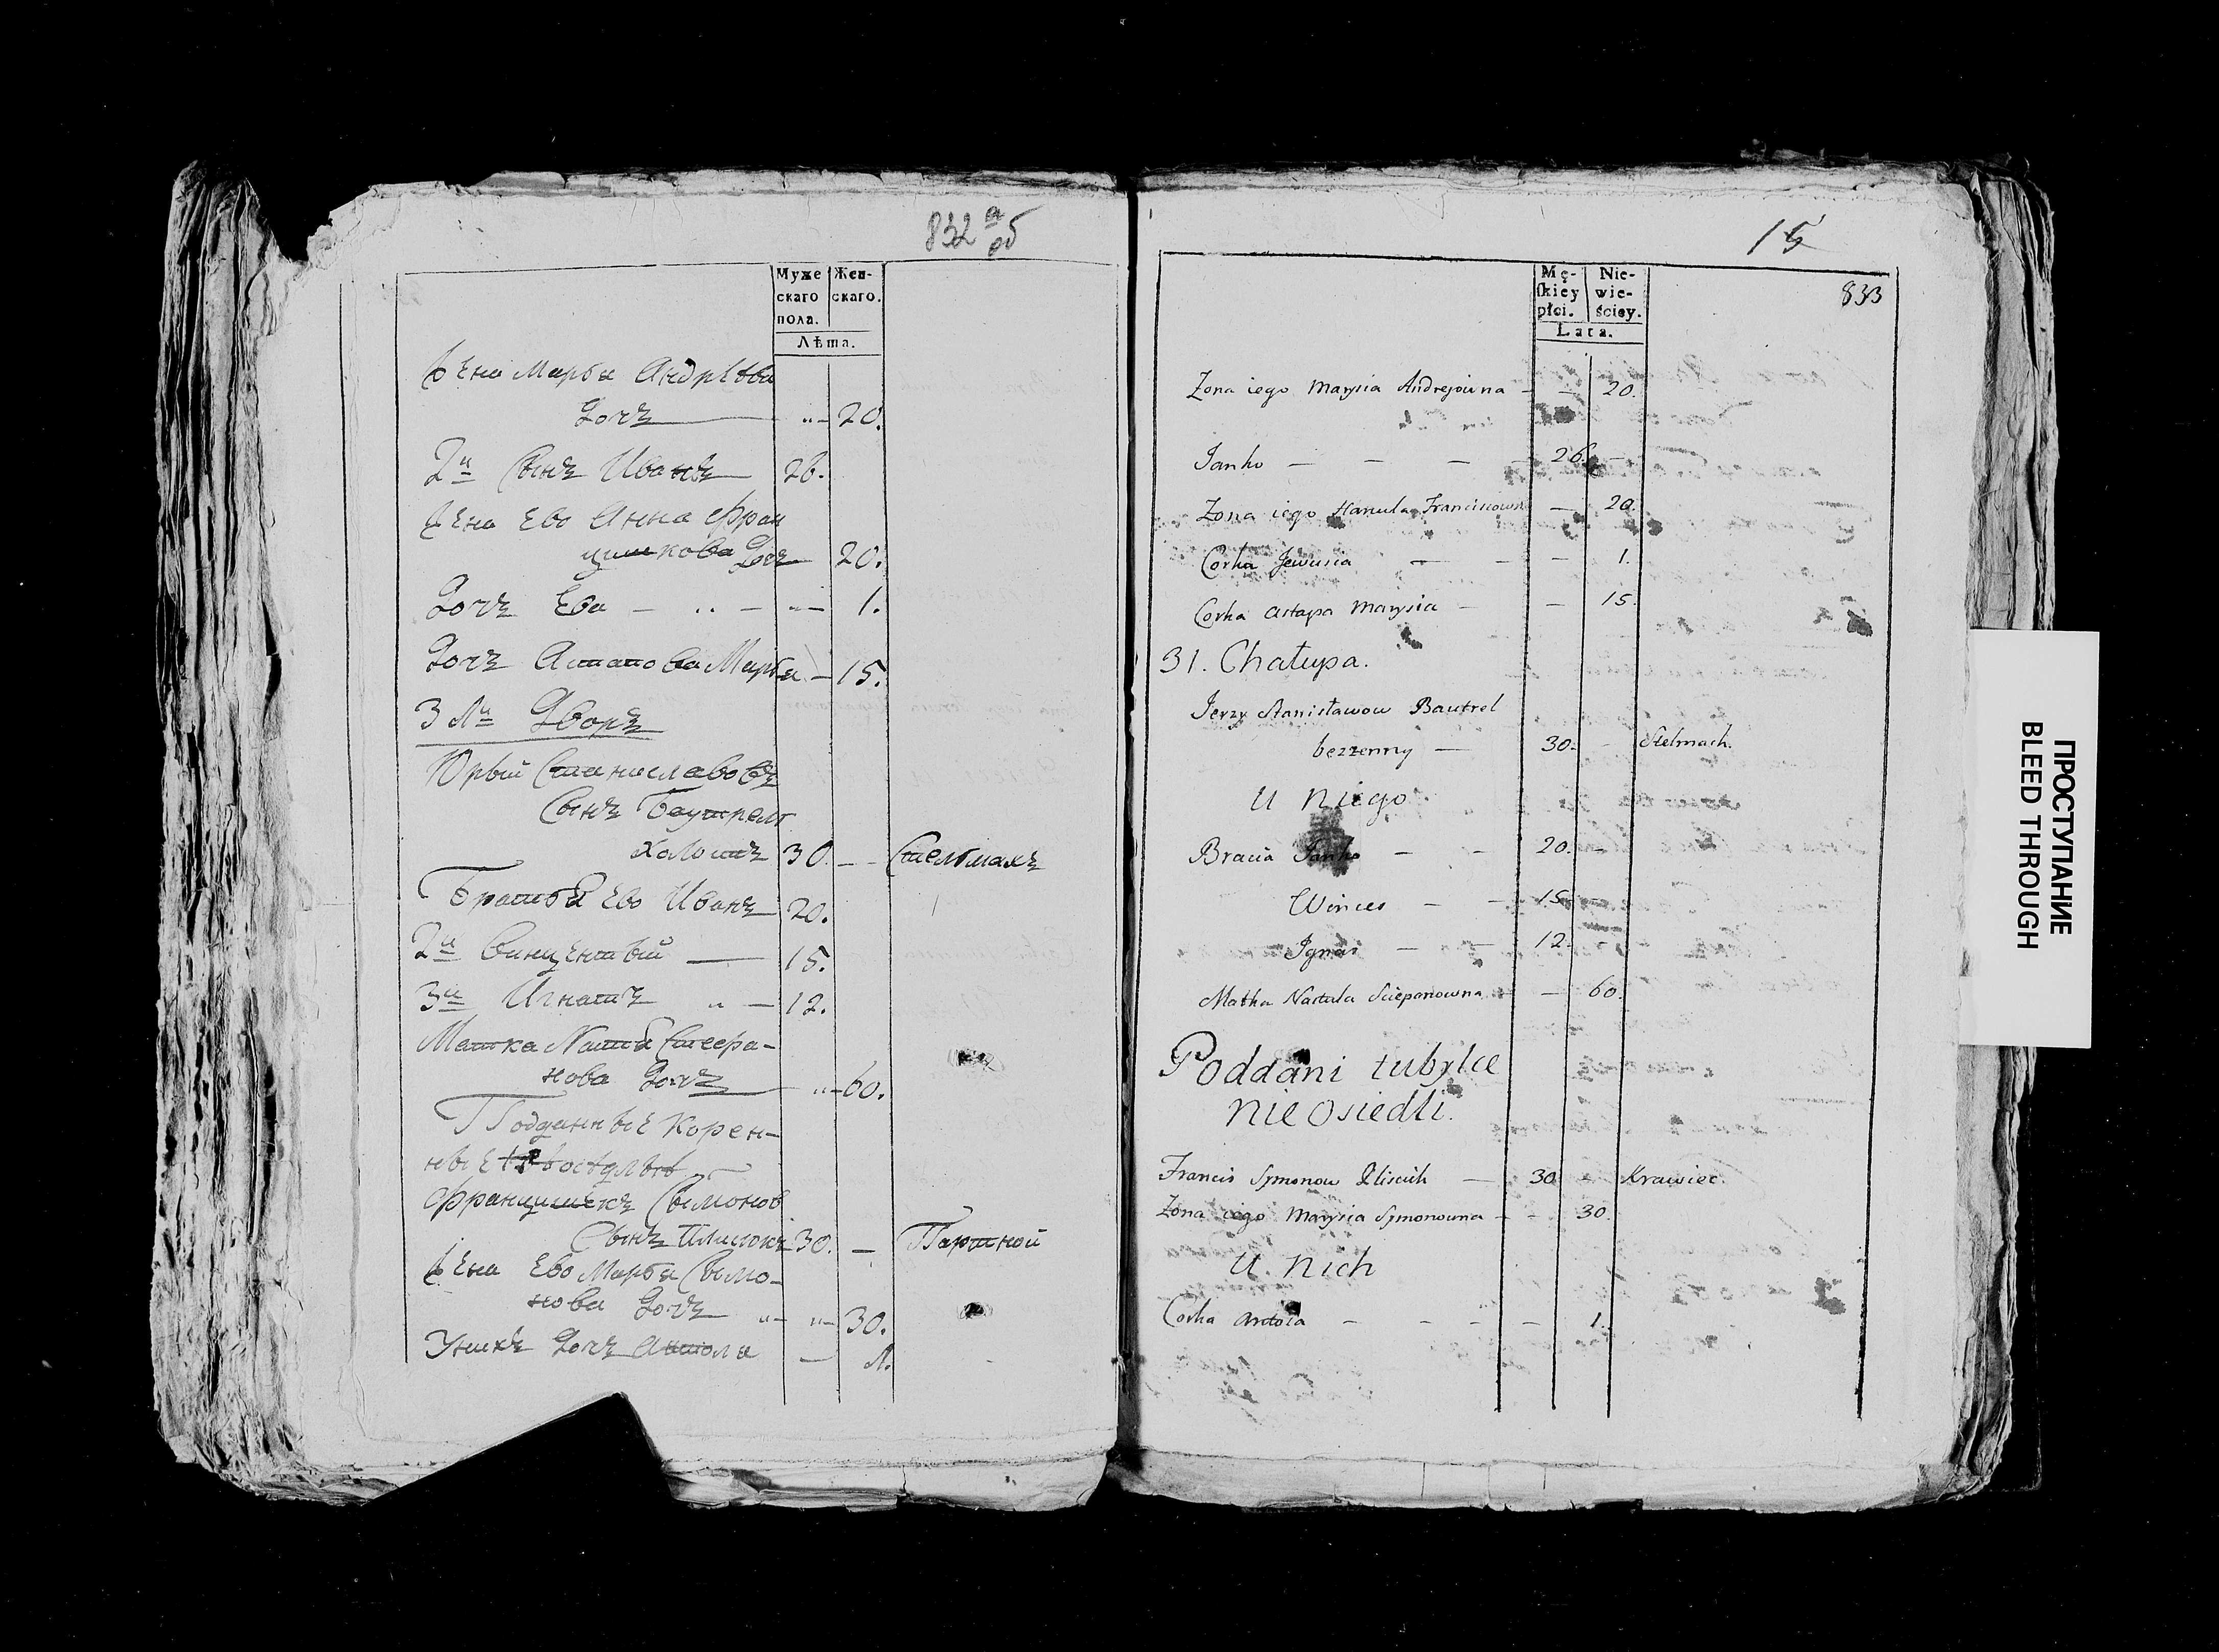 832а об
Муже
скаго
пола.
Жен-
скаго.
Лѣта.
Жена Марья Андрѣева
Дочь 20.
2й Сынъ Иванъ 26.
Жена Ево Анна Фран
цишкова Дочь 20.
Дочь Ева 1.
Дочь Астапова Марья 15.
31й Дворъ
Юрый Станиславовъ
Сынъ Баутрель
холостъ 30. Стельмахъ
Братья Ево Иванъ 20.
2й Винцентый 15.
3й Игнатъ 12.
Матка Настя Стефа-
нова Дочь 60.
Подданные Корен-
ные
Францишекъ Сымонов
Сынъ 30. Партной
Жена Ево Марья Сымо-
нова Дочь 30.
У нихъ Дочь Антоля 1.
15
833
Mę-
skiey
płci.
Nie-
wie-
ściey.
Lata.
Zona iego Marysia Andrejowna 20.
Janko 26.
Zona iego Hanula Franciszkowna 20.
Corka Jewusia 1.
Corka Astapa Marysia 15.
31. Chałupa.
Jerzy Stanisławow Bautrel
bezzenny 30. Stelmach.
U Niego
Bracia Janko 20.
Winces 15
Ignas 12.
Matka Nastula Sciepanowna 60.
Poddani tubylce
nieosiedli.
Francis Symonow 30 Krawiec.
Zona iego Marysia Symonowna 30.
U Nich
Corka Antola 1.
ПРОСТУПАНИЕ
BLEED THROUGH